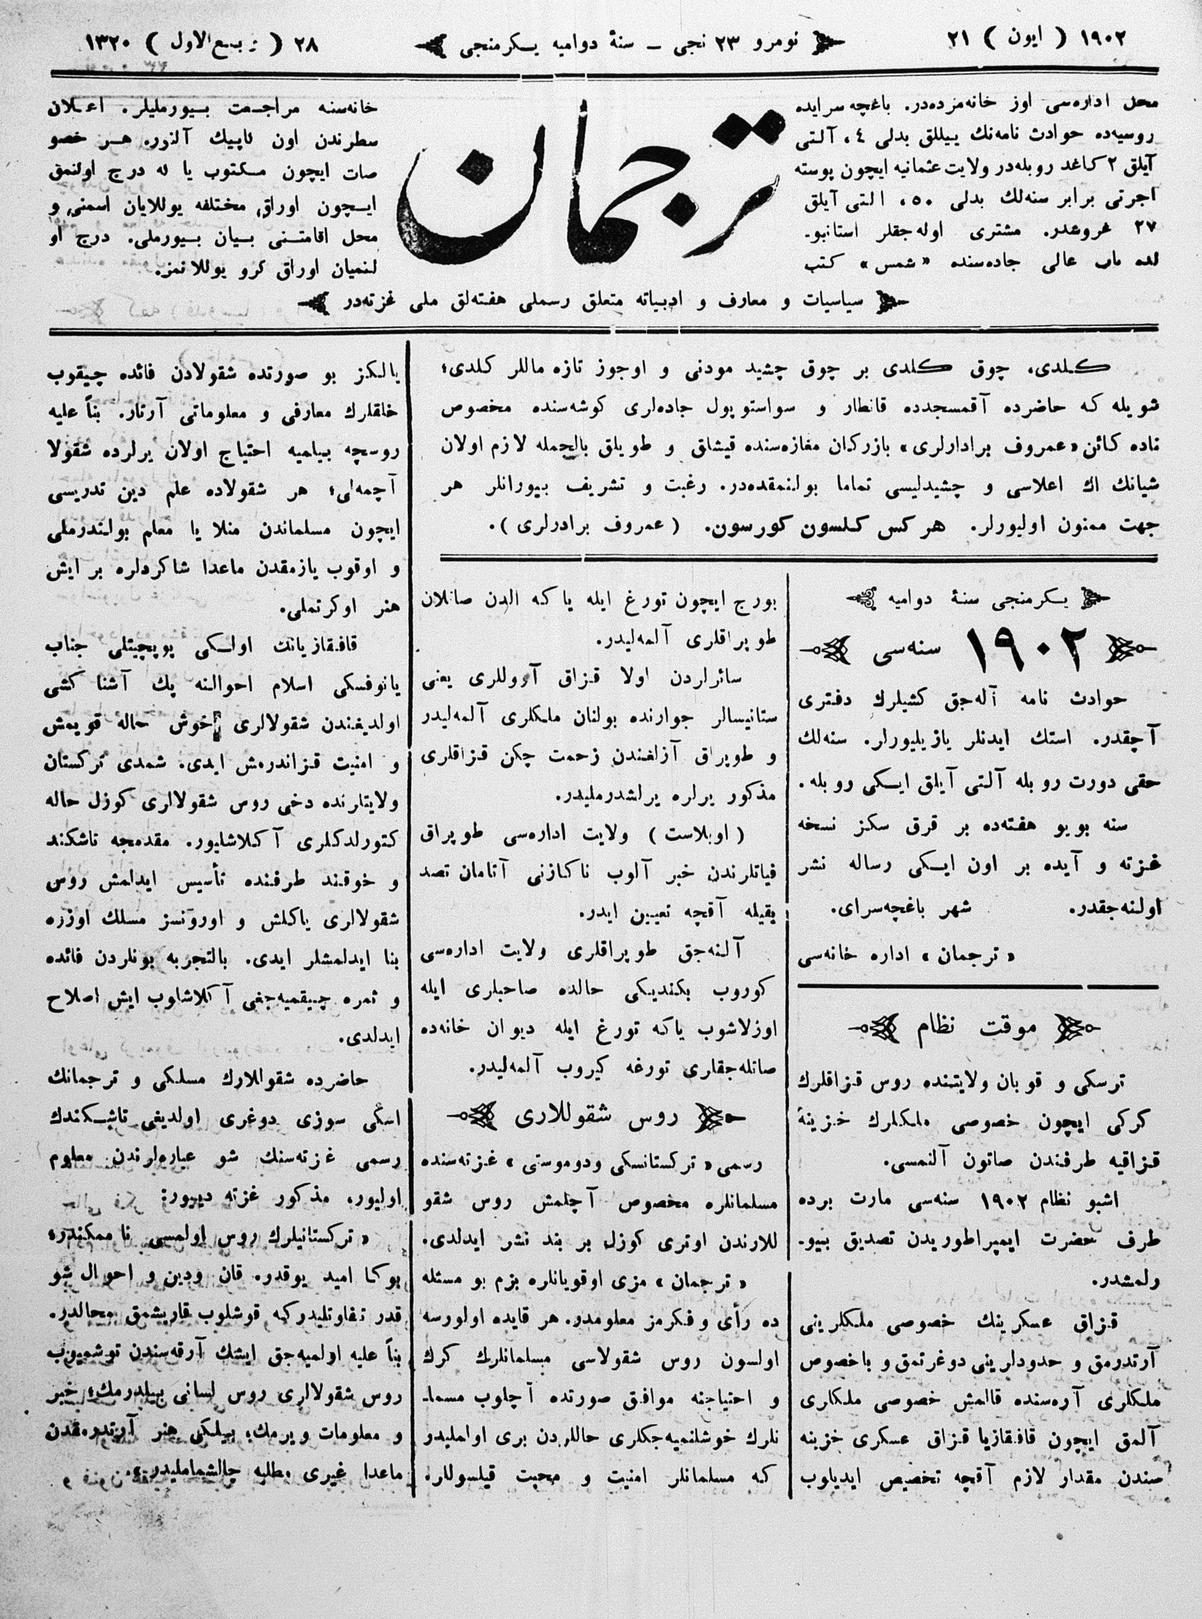 ١٩٠٢ ( ايون ) ٢١
نومرو ٢٣ نجی — سنۀ دواميه يكرمنجی
٢٨ ( ربيع الاول ) ١٣٢٠
محل اداره‌سی اوز خانه‌مزده‌در. باغچه سرايده
روسيه‌ده حوادث نامه‌نك ييللق بدلی ٤، آلتی
آيلق ٢ كاغد روبله‌در ولايت عثمانيه ايچون پوسته
اجرتی برابر سنه‌لك بدلی ٥٠، التی آيلق
٢٧ غروشدر. مشتری اوله‌جقلر استانبو-
لده باب عالی جاده‌سنده «شمس» كتب
ترجمان
خانه‌سنه مراجعت بيورمليلر. اعلان
سطرندن اون كاپيك آلنور. هر خصو
صات ايچون مكتوب يا له درج اولنمق
ايچون اوراق مختلفه يوللايان اسمنی و
محل اقامتنی بيان بيورملی. درج او
لنميان اوراق كرو يوللانمز.
سياسيات و معارف و ادبياته متعلق رسملی هفته‌لق ملی غزته‌در
كلدی، چوق كلدی بر چوق چشيد مودنی و اوجوز تازه ماللر كلدی؛
شويله كه حاضرده آقمسجدده قانطار و سواستوپول جاده‌لری كوشه‌سنده مخصوص
ناده كائن «عمروف برادارلری» بازركان مغازه‌سنده قيشلق و طويلق بالجمله لازم اولان
شيانك اك اعلاسی و چشيدليسی تماما بولنمقده‌در. رغبت و تشريف بيورانلر هر
جهت ممنون اوليورلر. هركس كلسون كورسون. ( عمروف برادرلری ).
يكرمنجی سنۀ دواميه
١٩٠٢ سنه‌سی
حوادث نامه آله‌جق كشيلرك دفتری
آچقدر. استك ايدنلر يازيليورلر. سنه‌لك
حقی دورت روبله آلتی آيلق ايكی روبله.
سنه بويو هفته‌ده بر قرق سكز نسخه
غزته و آيده بر اون ايكی رساله نشر
اولنه‌جقدر. شهر باغچه‌سرای.
«ترجمان» اداره خانه‌سی
موقت نظام
ترسكی و قوبان ولايتنده روس قزاقلرك
كركی ايچون خصوصی ملكلرك خزينۀ
قزاقيه طرفندن صاتون آلنمسی.
اشبو نظام ١٩٠٢ سنه‌سی مارت برده
طرف حضرت ايمپراطوريدن تصديق بيو-
رلمشدر.
قزاق عسكرينك خصوصی ملكلرينی
آرتدرمق و حدودلرينی دوغرتمق و باخصوص
ملكلری آره‌سنده قالمش خصوصی ملكلری
آلمق ايچون قافقازيا قزاق عسكری خزينه
سندن مقدار لازم آقچه تخصيص ايديلوب
بورج ايچون تورغ ايله ياكه الدن صانلان
طوپراقلری آلمه‌ليدر.
سائراردن اولا قزاق آروللری يعنی
ستانيسالر جوارنده بولنان ملكلری آلمه‌ليدر
و طوپراق آزلغندن زحمت چكن قزاقلری
مذكور يرلره يرلشدرمليدر.
( اوبلاست ) ولايت اداره‌سی طوپراق
فياتلرندن خبر آلوب ناكازنی آتامان تصد
يقيله آقچه تعيين ايدر.
آلنه‌جق طوپراقلری ولايت اداره‌سی
كوروب بكنديكی حالده صاحبلری ايله
اوزلاشوب ياكه تورغ ايله ديوان خانه‌ده
صاتله‌جقاری تورغه كيروب آلمه‌ليدر.
روس شقوللاری
رسمی «تركستانسكی ودوموستی» غزته‌سنده
مسلمانلره مخصوص آچلمش روس شقو
للارندن اوتری كوزل بر بند نشر ايدلدی.
«ترجمان» مزی اوقويانلره بزم بو مسئله
ده رأی و فكرمز معلومدر. هر قايده اولورسه
اولسون روس شقولاسی مسلمانلرك كرك
و احتياجنه موافق صورتده آچلوب مسما-
نلرك خوشلنميه‌جكلری حاللردن بری اولمليدر
كه مسلمانلر امنيت و محبت قيلسولار.
يالكز بو صورتده شقولادن فائده چيقوب
خلقلرك معارفی و معلوماتی آرتار. بناً عليه
روسچه بيلميه احتياج اولان يرلرده شقولا
آچمه‌لی؛ هر شقولاده علم دين تدريسی
ايچون مسلماندن منلا يا معلم بولندرملی
و اوقوب يازمقدن ماعدا شاكردلره بر ايش
هنر اوكرتملی.
قافقازيانك اولكی پوپچيتلی جناب
يانوفسكی اسلام احوالنه پك آشنا كشی
اولديغندن شقولالری خوش حاله قويمش
و امنيت قزاندرمش ايدی. شمدی تركستان
ولايتارنده دخی روس شقولالری كوزل حاله
كتورلدكلری آكلاشليور. مقدمجه تاشكند
و خوقند طرفنده تأسيس ايدلمش روس
شقولالری ياكلش و اورونسز مسلك اوزره
بنا ايدلمشلر ايدی. بالتجربه بونلردن فائده
و ثمره چيقميه‌جغی آكلاشلوب ايش اصلاح
ايدلدی.
حاضرده شقولالارك مسلكی و ترجمانك
اسكی سوزی دوغری اولديغی تاشكندك
رسمی غزته‌سنك شو عباره‌لرندن معلوم
اوليور، مذكور غزته ديرور:
«تركستانيلرك روس اولمسی ناممكندر؛
بوكا اميد يوقدر. قان ودين و احوال شو
قدر تفاوتليدركه قوشلوب قاريشمق محالدر.
بناً عليه اولميه‌جق ايشك آرقه‌سندن توشميوب
روس شقولالری روس لسانی بيلدرمك؛ خبر
و معلومات ويرمك؛ بيلكی هنر آرتدرمقدن
ماعدا غيری مطلبه چالشماليدر».